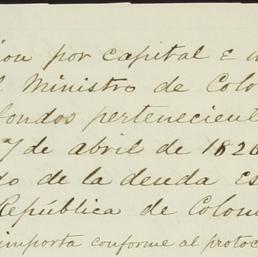 ion por capital e in
l Ministro de Colo
fondos perteneciente
7 de abril de 1826
do de la deuda Es
República de Colom
importa conforme al protoc